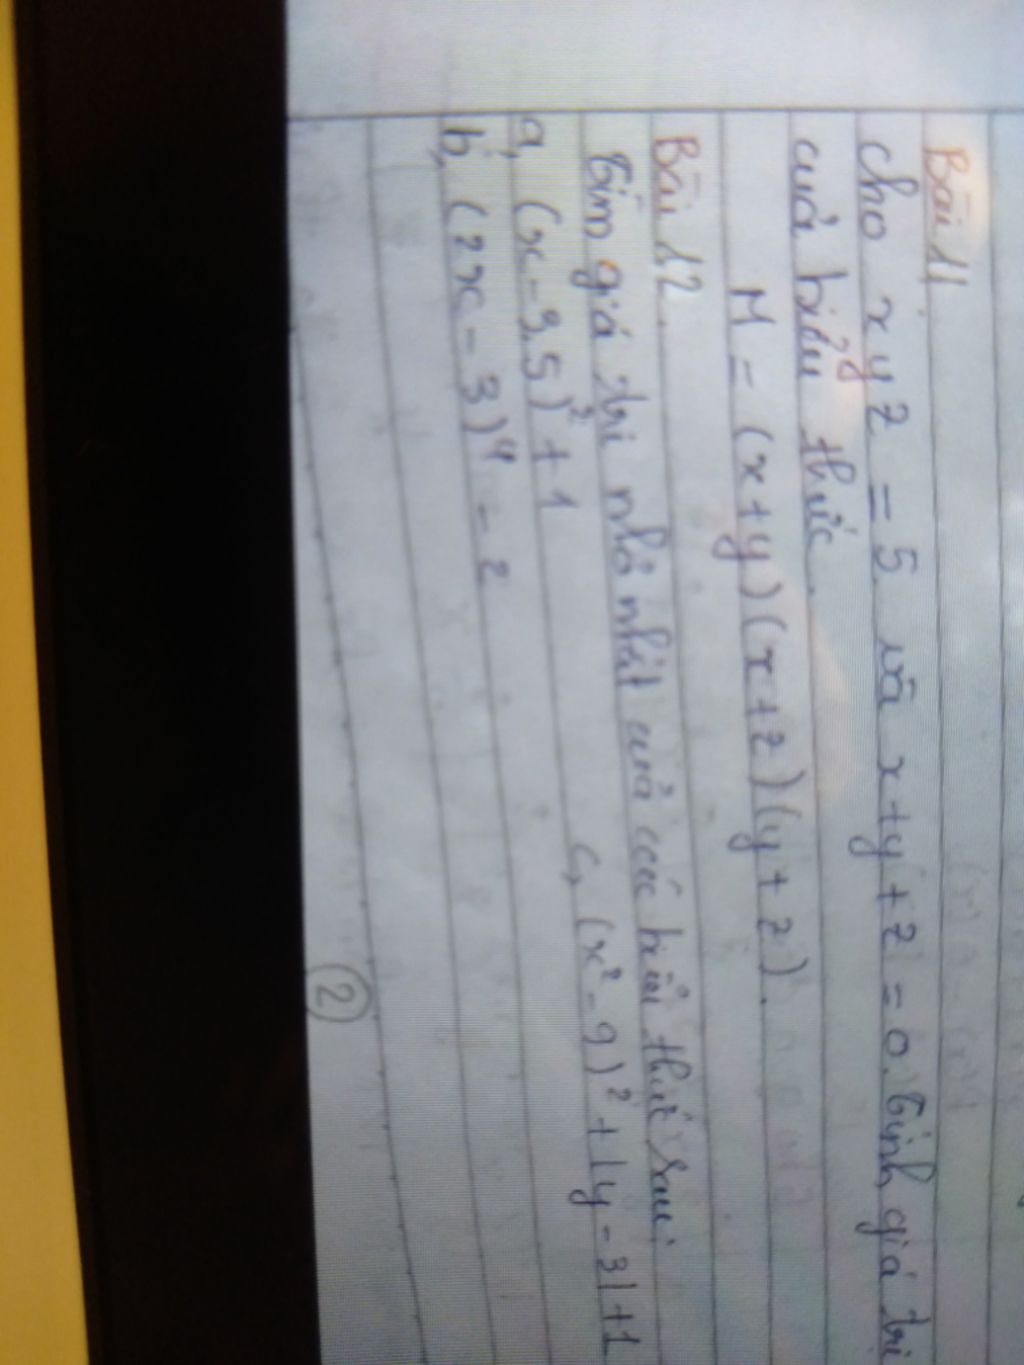 Bài 11
Cho xyz = 5 và x+y+z = 0. Tính giá trị
của biểu thức.
M = (x+y)(x+z)(y+z).
Bài 12
Tìm giá trị nhỏ nhất của các biểu thức sau:
a, (x-3,5)² + 1
c, (x²-9)² + |y-3|+1
b, (2x-3)⁴ - 2
2